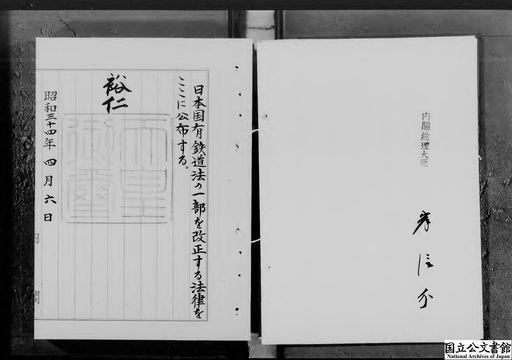 日本国有鉄道法の一部を改正する法律を
ここに公布する。
裕仁
天皇
御璽
昭和三十四年 四月 六日
内閣
内閣総理大臣
岸信介
国立公文書館
National Archives of Japan